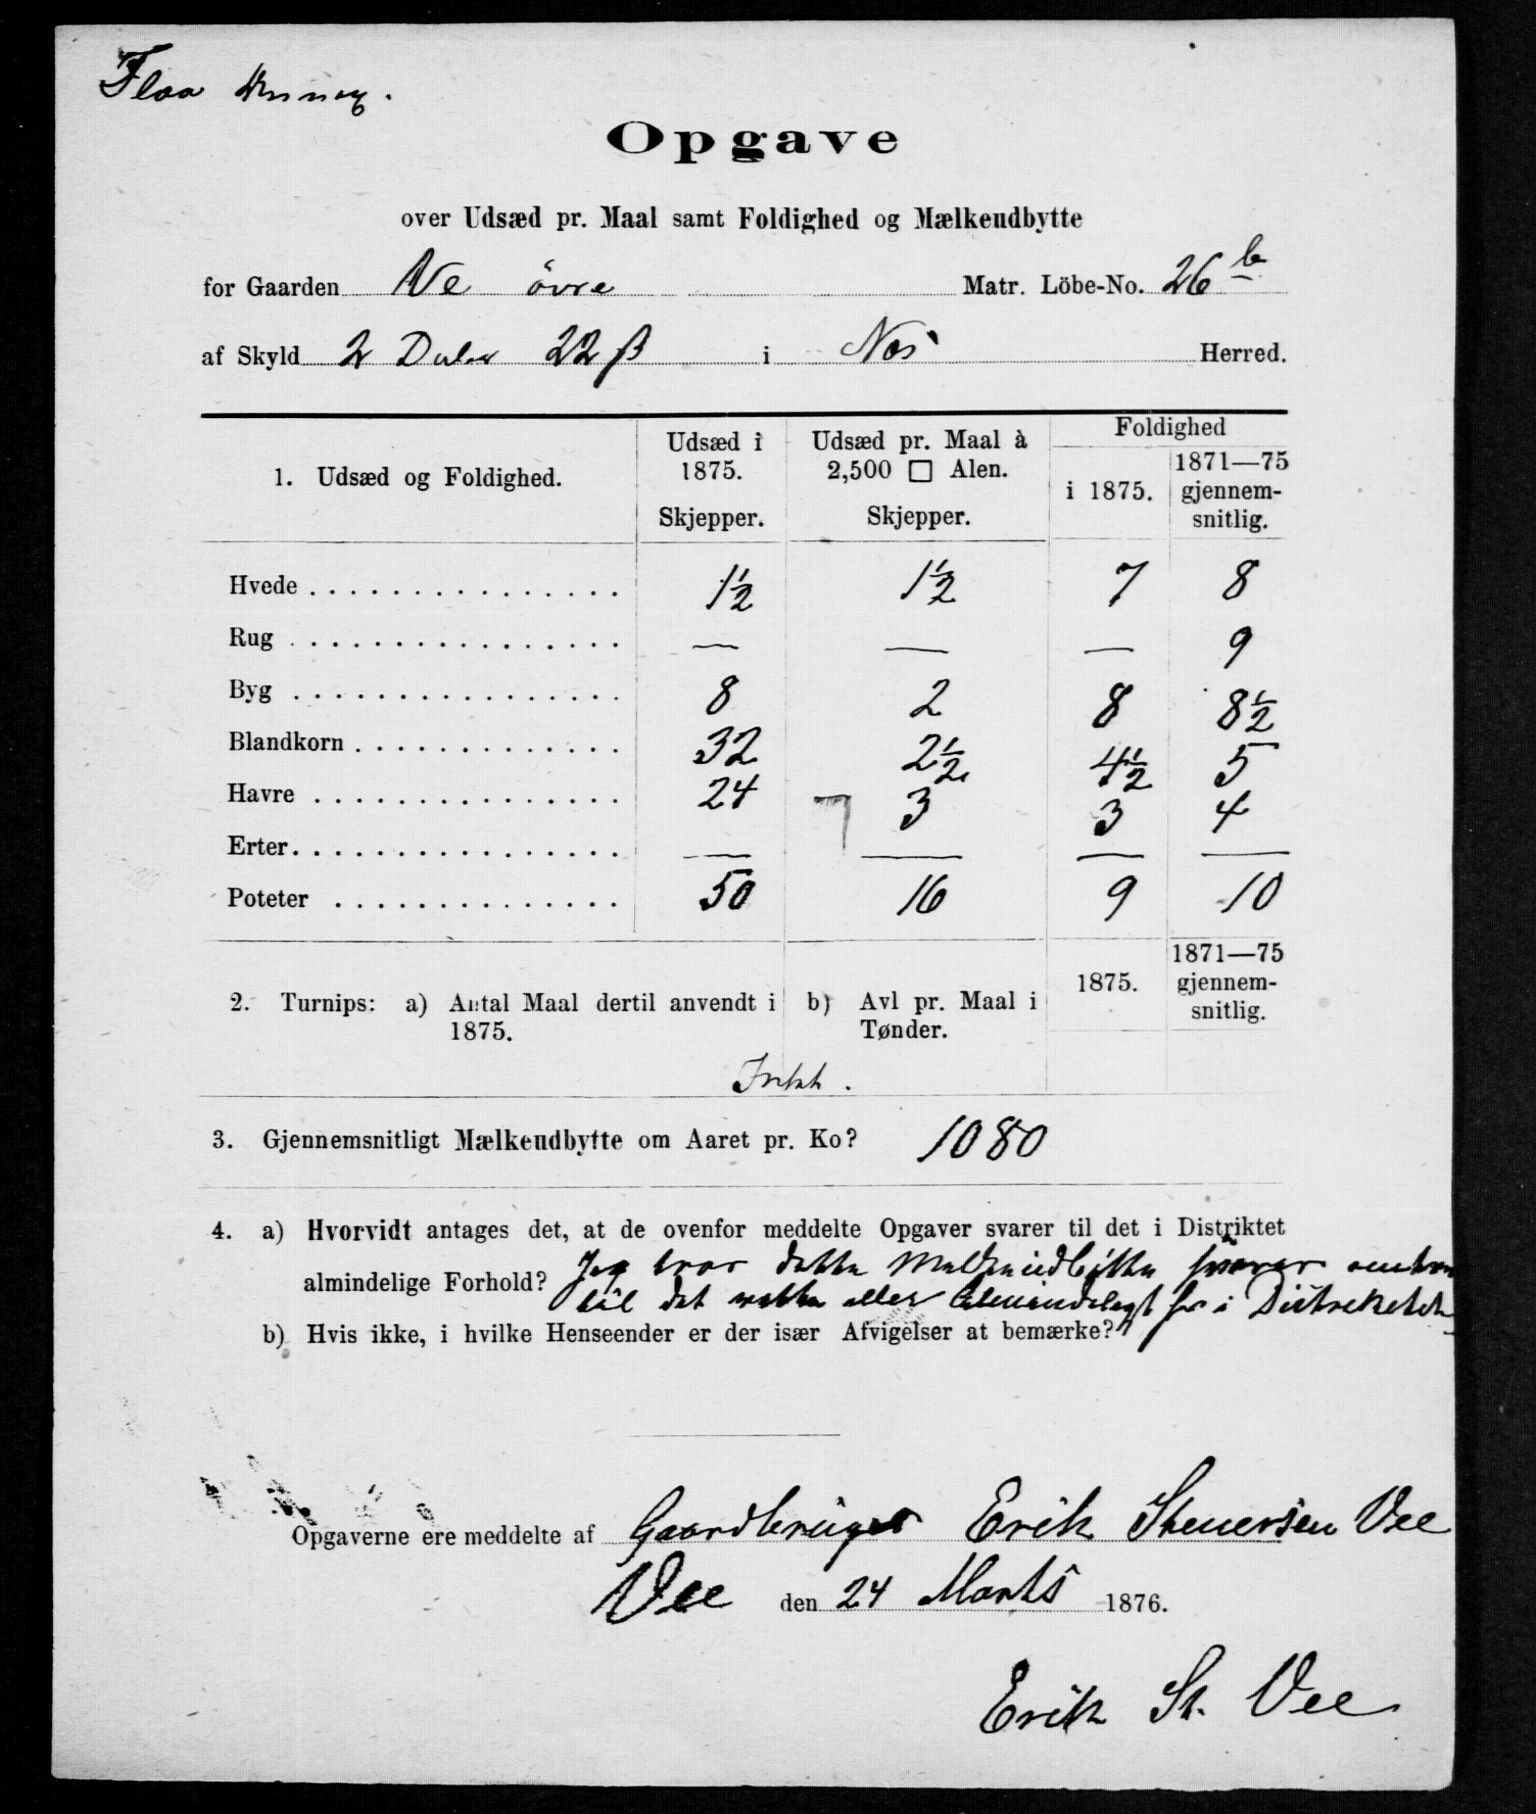 Flaa Annex.
Opgave
over Udsæd pr. Maal samt Foldighed og Mælkeudbytte
for Gaarden Ve övre Matr. Löbe-No. 26 b
af Skyld 2 Daler 22 ß i Næs Herred.
1. Udsæd og Foldighed. Udsæd i 1875. Skjepper. Udsæd pr. Maal à 2,500 □ Alen. Skjepper. Foldighed i 1875. 1871—75 gjennem-snitlig.
Hvede 1½ 1½ 7 8
Rug — — — 9
Byg 8 2 8 8½
Blandkorn 32 2½ 4½ 5
Havre 24 3 3 4
Erter — — — —
Poteter 50 16 9 10
2. Turnips: a) Antal Maal dertil anvendt i 1875. b) Avl pr. Maal i Tønder. 1875. 1871—75 gjennem-snitlig.
Intet.
3. Gjennemsnitligt Mælkeudbytte om Aaret pr. Ko? 1080
4. a) Hvorvidt antages det, at de ovenfor meddelte Opgaver svarer til det i Distriktet
almindelige Forhold? Jeg tror dette Melkeudbÿtte svarer omtrent
til det rette eller Almindelegt her i Distreketet
b) Hvis ikke, i hvilke Henseender er der især Afvigelser at bemærke?
Opgaverne ere meddelte af Gaardbruger Erik Steuersen Vee
Vee den 24 Marts 1876.
Erik St. Vee